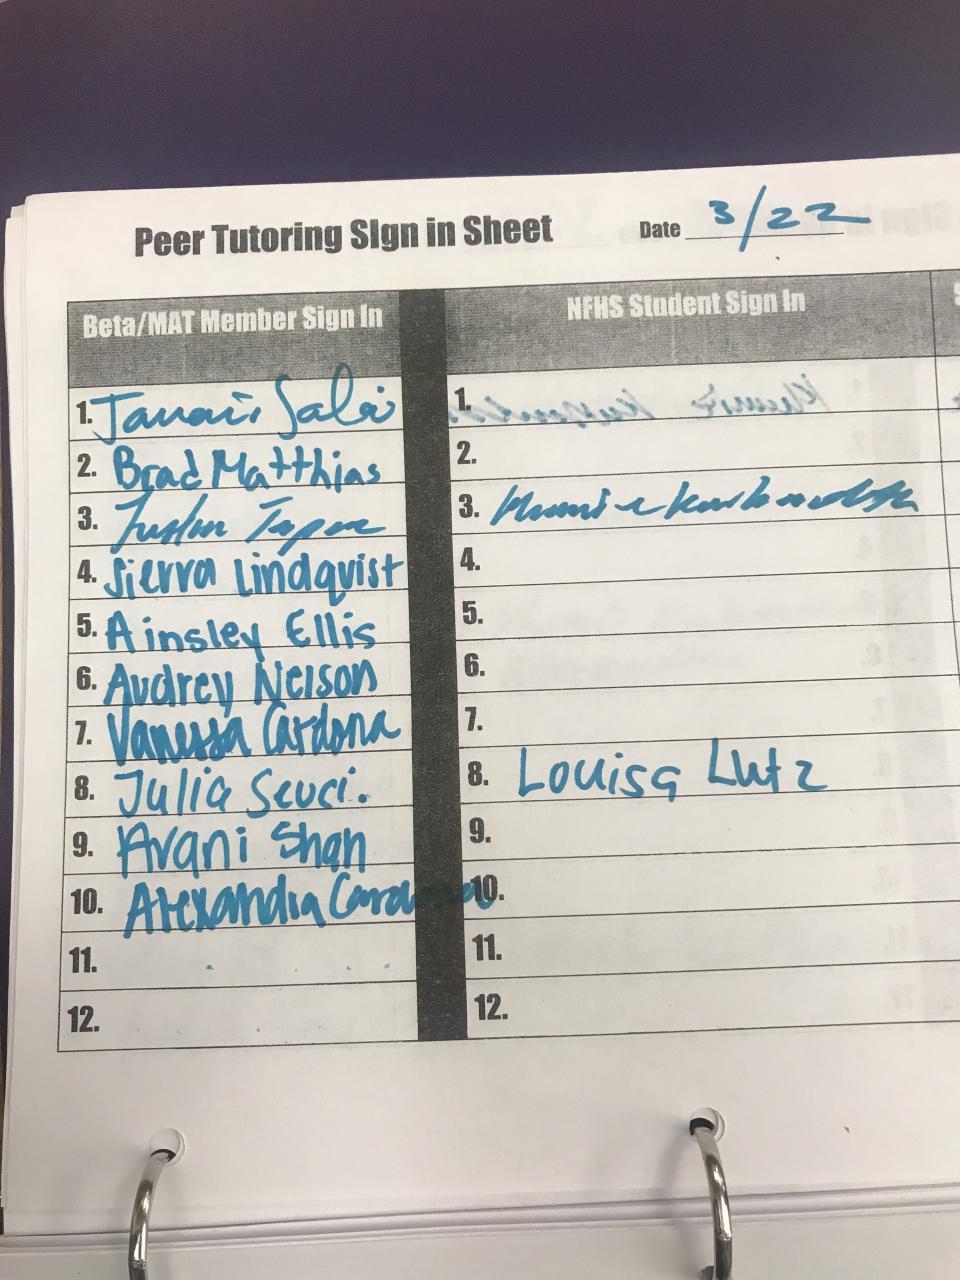 Peer Tutoring Sign in Sheet Date 3/22
Beta/MAT Member Sign In
NFHS Student Sign In
1.
1.
2. Brad Matthias
2.
3.
3.
4. Sierra Lindqvist
4.
5. Ainsley Ellis
5.
6. Audrey Nelson
6.
7. Vanessa Cardona
7.
8. Julia
8. Louisa Lutz
9. Avani Shah
9.
10. Alexandria Cardona
10.
11.
11.
12.
12.